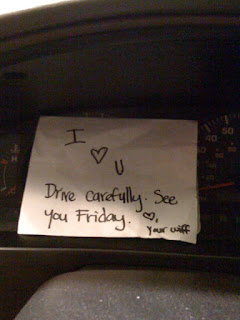 I
♡
U
Drive carefully. See
you Friday. ♡,
your wiff
40